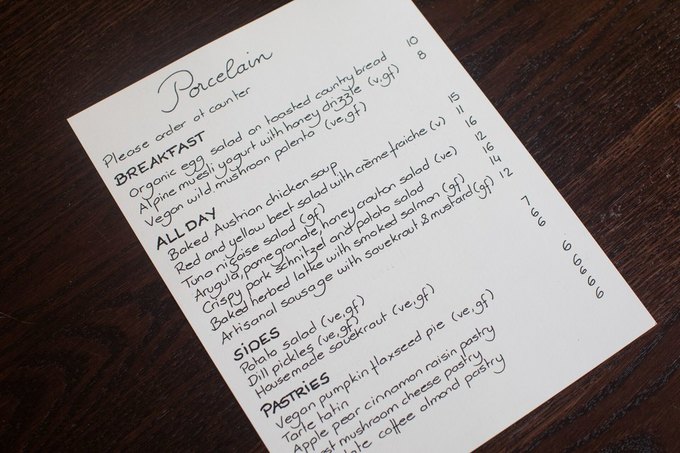 Porcelain
Please order at counter
BREAKFAST
Organic egg salad on toasted country bread 10
Alpine muesli yogurt with honey drizzle (v,gf) 8
Vegan wild mushroom polenta (ve,gf)
ALLDAY
Baked Austrian chicken soup 15
Red and yellow beet salad with crème fraiche (v) 11
Tuna niçoise salad (gf) 16
Arugula, pomegranate, honey crouton salad (ve) 12
Crispy pork schnitzel and potato salad 16
Baked herbed latke with smoked salmon (gf) 14
Artisanal sausage with sauekraut & mustard (gf) 12
SIDES
Potato salad (ve,gf) 7
Dill pickles (ve,gf) 6
Housemade sauekraut (ve,gf) 6
PASTRIES
Vegan pumpkin flaxseed pie (ve,gf) 6
Tarte tatin 6
Apple pear cinnamon raisin pastry 6
mushroom cheese pastry 6
coffee almond pastry 6